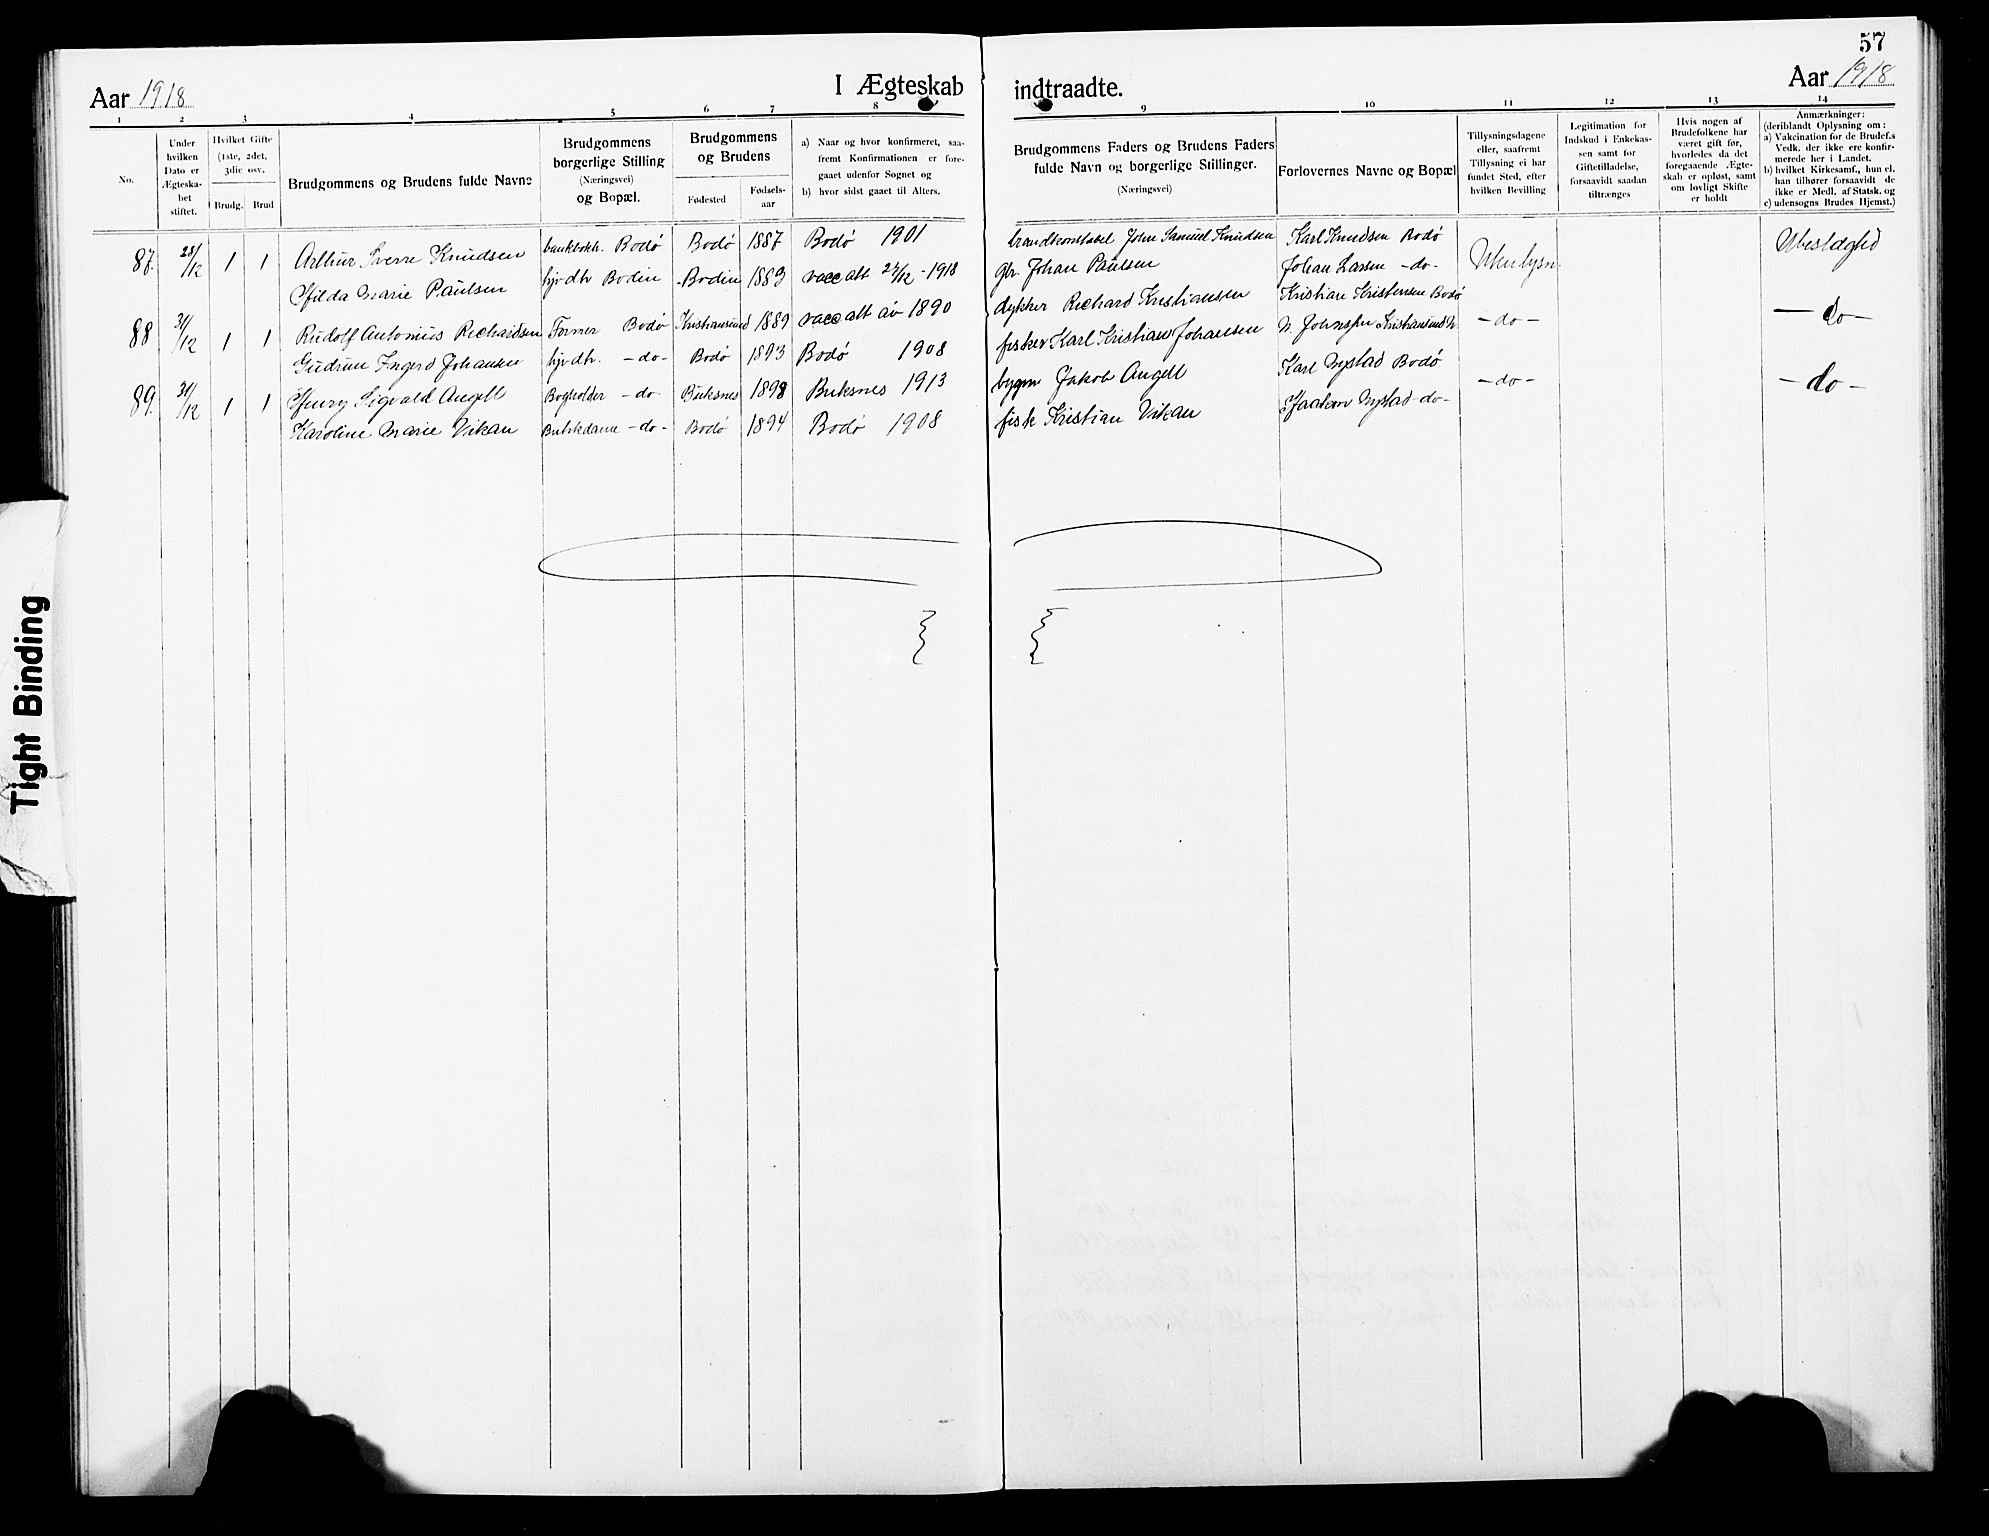 57
Aar 1918
I Ægteskab indtraadte.
Aar 1918
1 2 3 4 5 6 7 8 9 10 11 12 13 14
No.
Under hvilken Dato er Ægteska-bet stiftet.
Hvilket Gifte (1ste, 2det, 3die osv.
Brudg. Brud
Brudgommens og Brudens fulde Navne
Brudgommens borgerlige Stilling (Næringsvei) og Bopæl.
Brudgommens og Brudens
Fødested
Fødsels-aar
a) Naar og hvor konfirmeret, saa-fremt Konfirmationen er fore-gaaet udenfor Sognet og
b) hvor sidst gaaet til Alters.
Brudgommens Faders og Brudens Faders fulde Navn og borgerlige Stillinger. (Næringsvei)
Forlovernes Navne og Bopæl
Tillysningsdagene eller, saafremt Tillysning ei har fundet Sted, efter hvilken Bevilling
Legitimation for Indskud i Enkekas-sen samt for Giftetilladelse, forsaavidt saadan tiltrænges
Hvis nogen af Brudefolkene har været gift før, hvorledes da det foregaaende Ægte-skab er opløst, samt om lovligt Skifte er holdt
Anmærkninger: (deriblandt Oplysning om:
a) Vakcination for de Brudef.s Vedk. der ikke ere konfir-merede her i Landet.
b) hvilket Kirkesamf., hun el. han tilhører forsaavidt de ikke er Medl. af Statsk. og
c) udensogns Brudes Hjemst.)
87. 28/12 1 1 Arthur Sverre Knudsen Bodø Bodø 1887 Bodø 1901 brandkonstabel John Samuel Knudsen Karl Knudsen Bodø
Hilda Marie Paulsen hjvdtr Bodin Bodin 1883 vacc att 27/12 - 1918 gbr. Johan Paulsen Johan Larsen -do-
88 31/12 1 1 Rudolf Antonius Richardsen Former Bodø Kristiansund 1889 vacc att av 1890 dykker Richard Kristiansen Kristian Kristensen Bodø -do- -do-
Gudrun Ingerd Johansen hjvdtr. -do- Bodø 1893 Bodø 1908 fisker Karl Kristian Johansen Kristiansund N.
89. 31/12 1 1 Henry Sigvald Angell Bogholder -do- Buksnes 1898 Buksnes 1913 bygm Jakob Angell Karl Nystad Bodø -do- -do-
Karoline Marie Vikan Butikdame -do- Bodø 1894 Bodø 1908 fisk Kristian Vikan Haakon Nystad -do-
Tight Binding